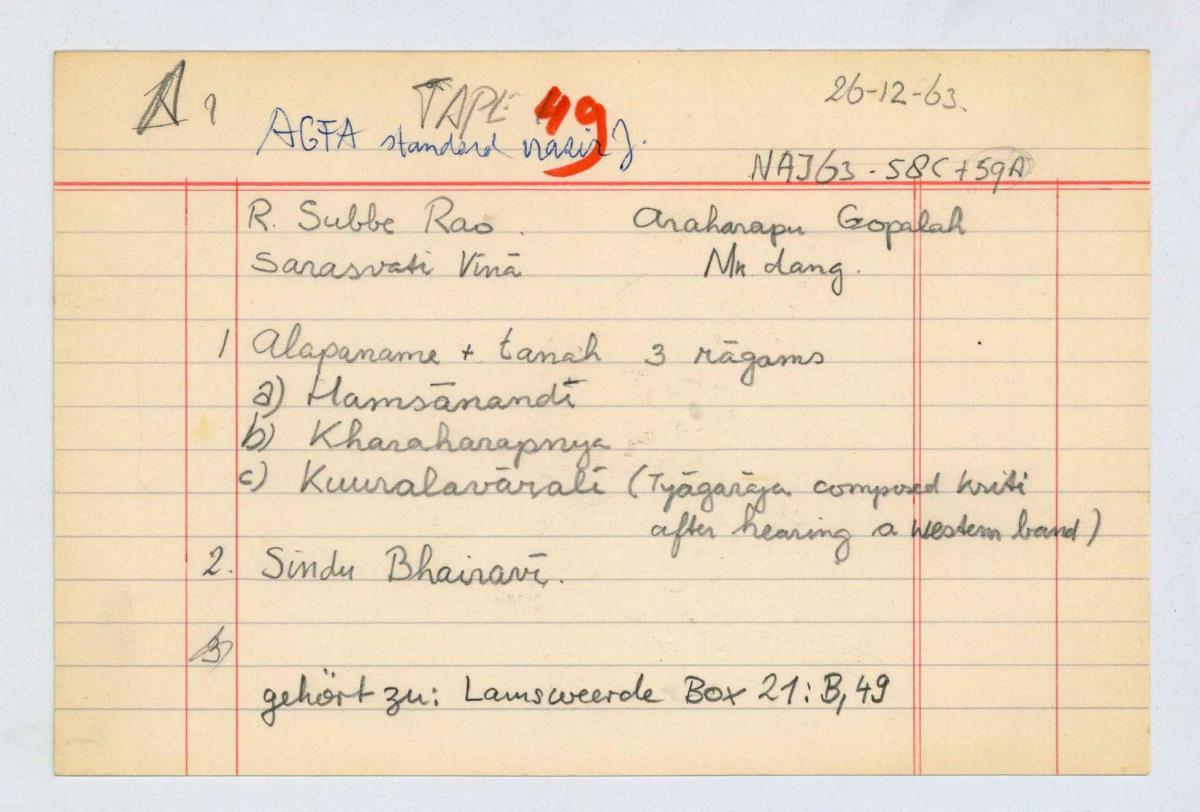 A ?
TAPE 49
26-12-63.
AGFA standard
NAJ63-58C+59A
R. Subbe Rao. Araharapu Gopalah
Sarasvati Vīnā Mṛdang.
1 Alapaname + tanah 3 rāgams
a) Hamsānandī
b) Kharaharapriya
c) Kuuralavāralī (Tyāgarāja composed kriti
after hearing a western band)
2. Sindu Bhairavī.
3
gehört zu: Lamsweerde Box 21: B, 49